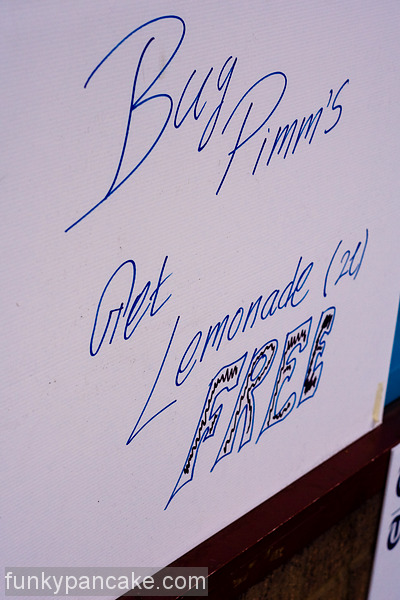 Bug
Pimm's
Get
Lemonade (2l)
FREE
funkypancake.com